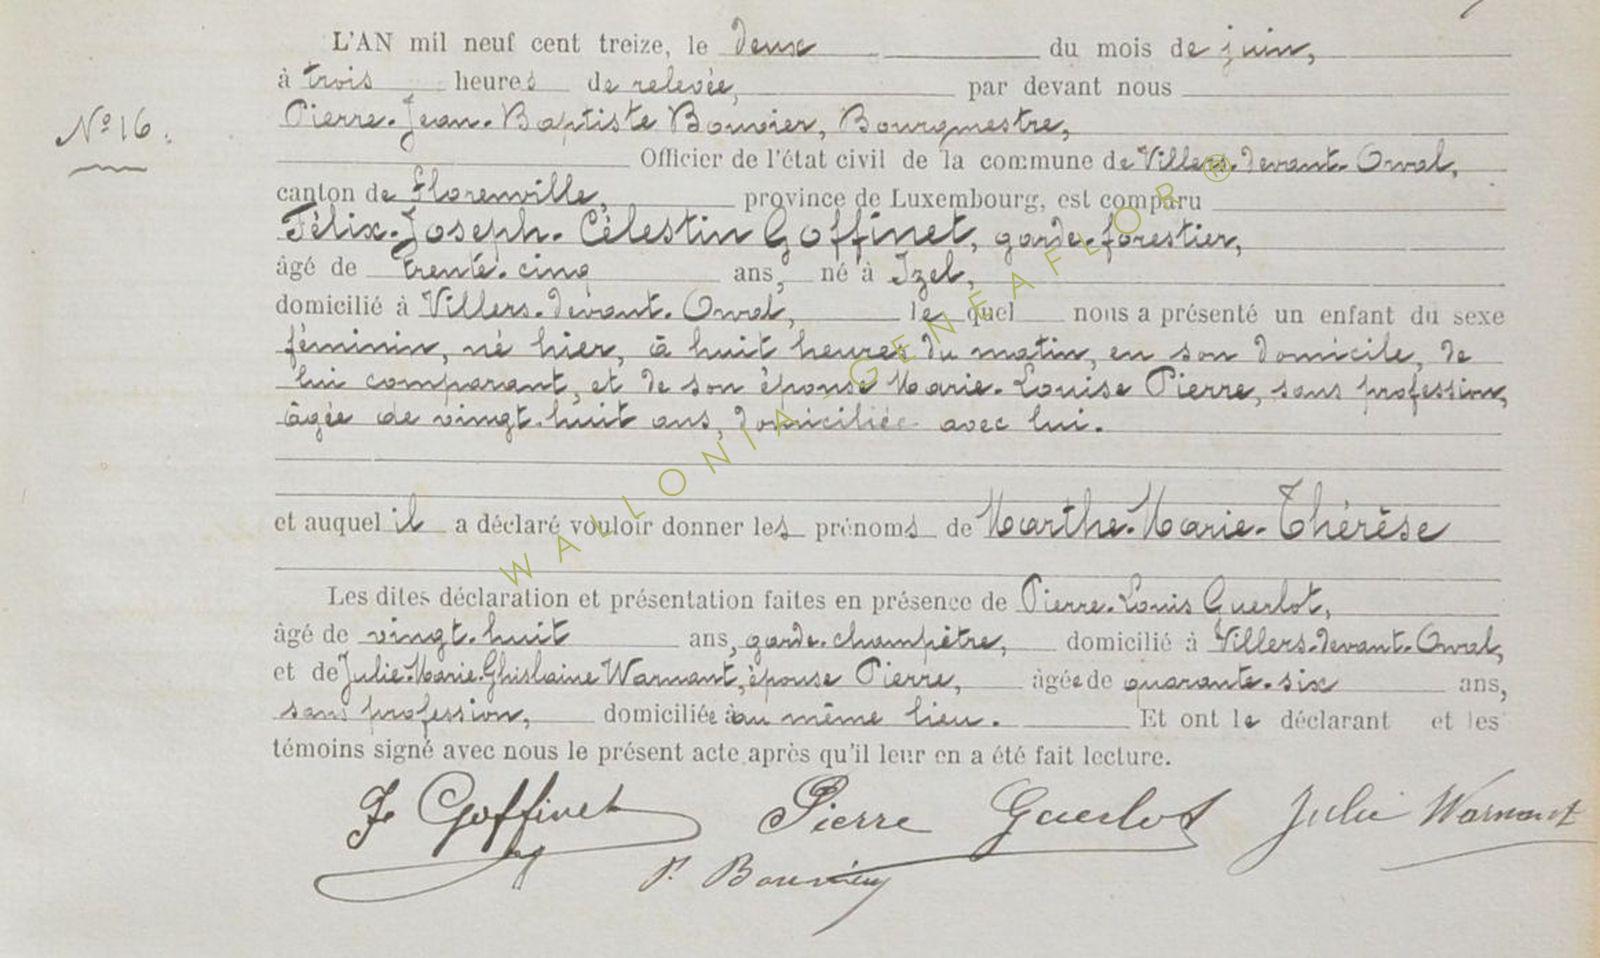 L'AN mil neuf cent treize, le deux du mois de juin,
à trois heures de relevée, par devant nous
Nº 16.
Pierre-Jean-Baptiste Bouvier, Bourgmestre,
Officier de l'état civil de la commune de Villers-devant-Orval,
canton de Florenville, province de Luxembourg, est comparu
Félix-Joseph-Célestin Goffinet, garde-forestier,
âgé de trente-cinq ans, né à Izel,
domicilié à Villers-devant-Orval, le quel nous a présenté un enfant du sexe
féminin, né hier, à huit heures du matin, en son domicile, de
lui comparant, et de son épouse Marie-Louise Pierre, sans profession,
âgée de vingt-huit ans, domiciliée avec lui.
et auquel il a déclaré vouloir donner les prénoms de Marthe-Marie-Thérèse
Les dites déclaration et présentation faites en présence de Pierre-Louis Guerlot,
âgé de vingt-huit ans, garde-champêtre, domicilié à Villers-devant-Orval,
et de Julie-Marie-Ghislaine Warnant, épouse Pierre, âgée de quarante-six ans,
sans profession, domiciliée au même lieu. Et ont le déclarant et les
témoins signé avec nous le présent acte après qu'il leur en a été fait lecture.
F Goffinet Pierre Guerlot Julie Warnant
P. Bouvier
WALLONIA-GENEAFLOR®